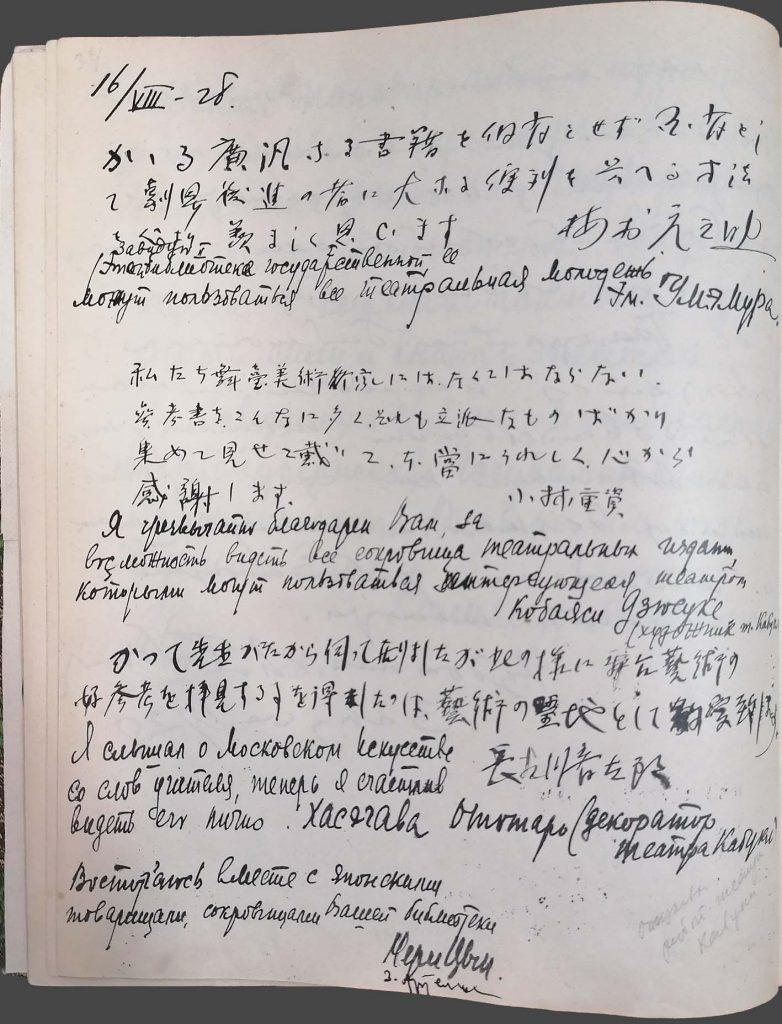 16/VIII - 28.
かゝる廣汎なる書籍を個有とせず 有とし
て劇界後進の者に大なる便利を与へる方法
を 羨ましく思ひます
Завидую
(Эта библиотека государственной ее
могут пользоваться вся театральная молодежь.
Эм. Умямура.
私たち舞臺美術 には、なくてはならない、
參考書を、こんなに多く、それも立派なものばかり
集めて見せて戴いて、本當にうれしく、心から
感謝します。 小林重資
Я чрезвычайно благодарен Вам, за
возможность видеть все сокровища театральных издани
которыми могут пользоваться интересующееся театром
Кобаяси Дзюсуке
(художник т. Кабуки
かつて先生がたから伺って居りましたが此の様に舞台藝術の
好参考を拝見する事を得ましたのは、藝術の聖地として
Я слышал о Московском Искусстве
長谷川音太郎
со слов учителя, теперь я счастлив
видеть его лично. Хасегава Ототаро (декоратор
театра Кабуки)
Восторгаюсь вместе с японскими
товарищами, сокровищами Вашей библиотеки
отзывы
театра
Кабуки